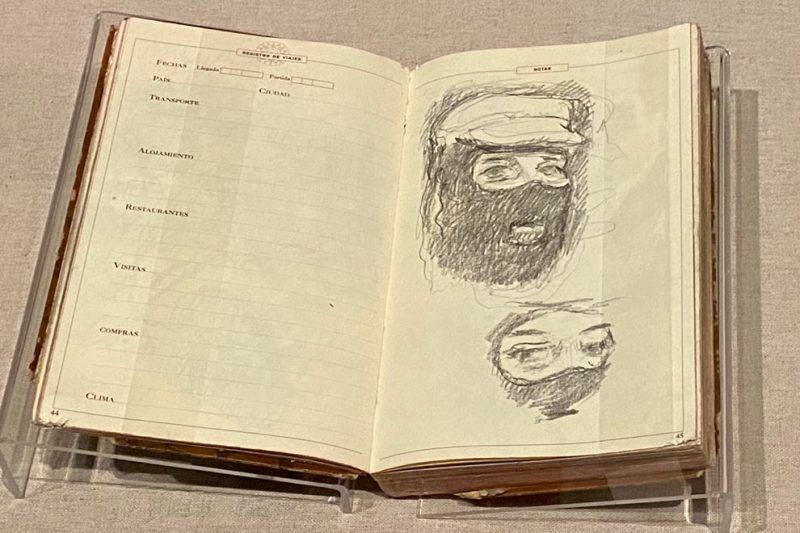 REGISTRO DE VIAJES
FECHAS Llegada Partida
PAÍS CIUDAD
TRANSPORTE
ALOJAMIENTO
RESTAURANTES
VISITAS
COMPRAS
CLIMA
44
NOTAS
45